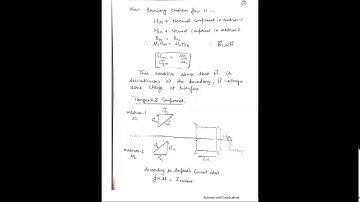 Now Boundary condition for H :-
H₁ₙ → Normal component in medium-1
H₂ₙ → Normal component in medium-2
B₁ₙ = B₂ₙ
∴ μ₁H₁ₙ = μ₂H₂ₙ ∵ B=μH
H₁ₙ/H₂ₙ = μ₂/μ₁
This condition shows that H is
discontinuous at the boundary, H undergo
some change at Interface.
Tangential Component:
medium-1
μ₁
medium-2
μ₂
According to Ampere's Circuit Law
∮H.dl = I enclosed
Scanned with CamScanner